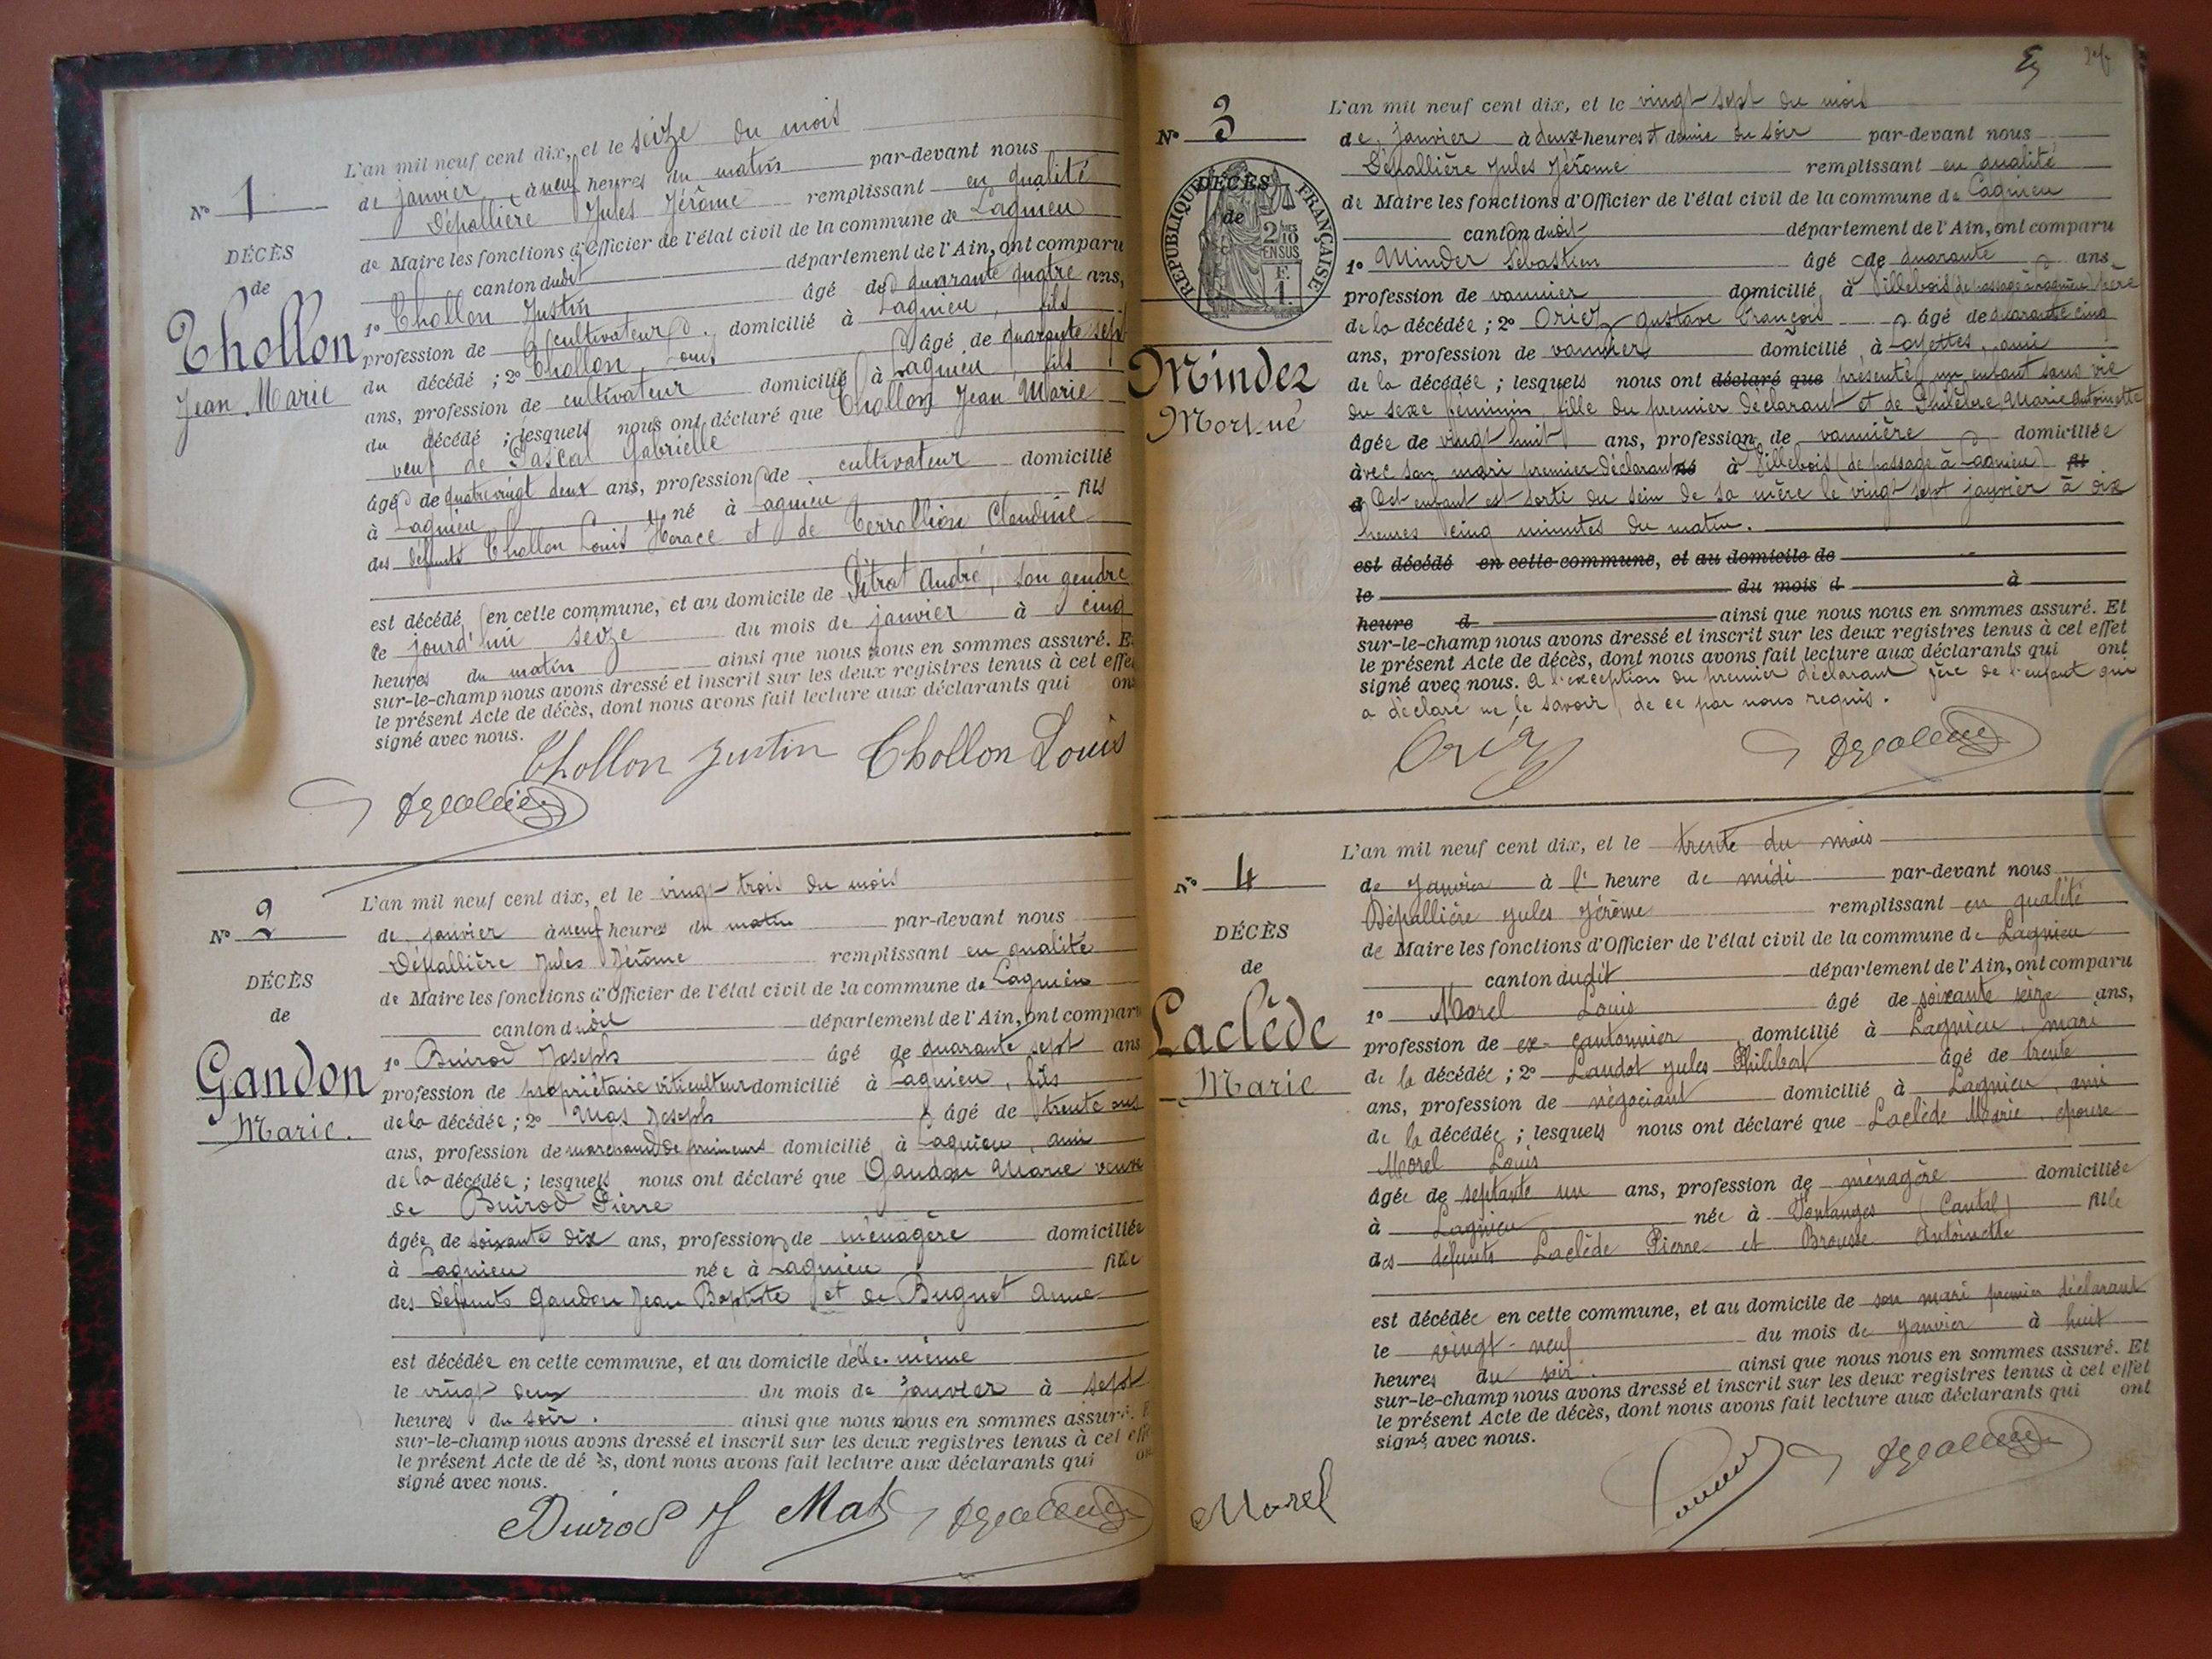 N° 1
DÉCÈS
de
Thollon
Jean Marie
L'an mil neuf cent dix, et le seize du mois
de janvier à neuf heures du matin par-devant nous
Dépallière Jules Jérôme remplissant en qualité
de Maire les fonctions d'Officier de l'état civil de la commune de Lagnieu
canton dudit département de l'Ain, ont comparu
1° Thollon Justin âgé de quarante quatre ans,
profession de cultivateur domicilié à Lagnieu, fils
du décédé ; 2° Thollon Louis âgé de quarante sept
ans, profession de cultivateur domicilié à Lagnieu, fils
du décédé ; lesquels nous ont déclaré que Thollon Jean Marie
veuf de Pascal Gabrielle
âgé de quatre vingt deux ans, profession de cultivateur domicilié
à Lagnieu né à Lagnieu fils
des défunts Thollon Louis Horace et de Terrollion Claudine
est décédé en cette commune, et au domicile de Pitrat André, son gendre
le jourd'hui seize du mois de janvier à cinq
heures du matin ainsi que nous nous en sommes assuré. E
sur-le-champ nous avons dressé et inscrit sur les deux registres tenus à cet effe
le présent Acte de décès, dont nous avons fait lecture aux déclarants qui on
signé avec nous.
Thollon Justin Thollon Louis
N° 2
DÉCÈS
de
Gandon
Marie.
L'an mil neuf cent dix, et le vingt trois du mois
de janvier à neuf heures du matin par-devant nous
Dépallière Jules Jérôme remplissant en qualité
de Maire les fonctions d'Officier de l'état civil de la commune de Lagnieu
canton dudit département de l'Ain, ont comparu
1° Buirod Joseph âgé de quarante sept ans
profession de propriétaire viticulteur domicilié à Lagnieu, fils
de la décédée ; 2° Mas Joseph âgé de trente ans
ans, profession de marchand de primeurs domicilié à Lagnieu, ami
de la décédée ; lesquels nous ont déclaré que Gandon Marie veuve
de Buirod Pierre
âgée de soixante dix ans, profession de ménagère domiciliée
à Lagnieu née à Lagnieu fille
des défunts Gandon Jean Baptiste et de Buguet Anne
est décédée en cette commune, et au domicile d'elle-même
le vingt deux du mois de janvier à sept
heures du soir. ainsi que nous nous en sommes assuré.
sur-le-champ nous avons dressé et inscrit sur les deux registres tenus à cet eff
le présent Acte de dé ès, dont nous avons fait lecture aux déclarants qui on
signé avec nous.
Buirod J Mas
N° 3
DÉCÈS
de
RÉPUBLIQUE FRANÇAISE
2/10
EN SUS
F.
1.
Minder
Mort-né
L'an mil neuf cent dix, et le vingt sept du mois
de janvier à deux heures & demie du soir par-devant nous
Dépallière Jules Jérôme remplissant en qualité
de Maire les fonctions d'Officier de l'état civil de la commune de Lagnieu
canton dudit département de l'Ain, ont comparu
1° Minder Sébastien âgé de quarante ans,
profession de vannier domicilié à Villebois (de passage à Lagnieu) père
de la décédée ; 2° Oriez Gustave François âgé de quarante cinq
ans, profession de vannier domicilié à Loyettes, ami
de la décédée ; lesquels nous ont déclaré que présenté un enfant sans vie
du sexe féminin fille du premier déclarant et de Marie Antoinette
âgée de vingt huit ans, profession de vannière domiciliée
avec son mari premier déclarant né à Villebois (de passage à Lagnieu) fil
d Cet enfant est sorti du sein de sa mère le vingt sept janvier à dix
heures cinq minutes du matin.
est décédé en cette commune, et au domicile de
le du mois d à
heure d ainsi que nous nous en sommes assuré. Et
sur-le-champ nous avons dressé et inscrit sur les deux registres tenus à cet effet
le présent Acte de décès, dont nous avons fait lecture aux déclarants qui ont
signé avec nous. à l'exception du premier déclarant père de l'enfant qui
a déclaré ne le savoir, de ce par nous requis.
Oriez
N° 4
DÉCÈS
de
Laclède
Marie
L'an mil neuf cent dix, et le trente du mois
de janvier à l' heure de midi par-devant nous
Dépallière Jules Jérôme remplissant en qualité
de Maire les fonctions d'Officier de l'état civil de la commune de Lagnieu
canton dudit département de l'Ain, ont comparu
1° Morel Louis âgé de soixante seize ans,
profession de ex-cantonnier domicilié à Lagnieu, mari
de la décédée ; 2° Landot Jules Philibert âgé de trente
ans, profession de négociant domicilié à Lagnieu, ami
de la décédée ; lesquels nous ont déclaré que Laclède Marie, épouse
Morel Louis
âgée de septante un ans, profession de ménagère domiciliée
à Lagnieu née à Fontanges (Cantal) fille
des défunts Laclède Pierre et Brousse Antoinette
est décédée en cette commune, et au domicile de son mari premier déclarant
le vingt-neuf du mois de janvier à huit
heures du soir. ainsi que nous nous en sommes assuré. Et
sur-le-champ nous avons dressé et inscrit sur les deux registres tenus à cet effet
le présent Acte de décès, dont nous avons fait lecture aux déclarants qui ont
signé avec nous.
Morel